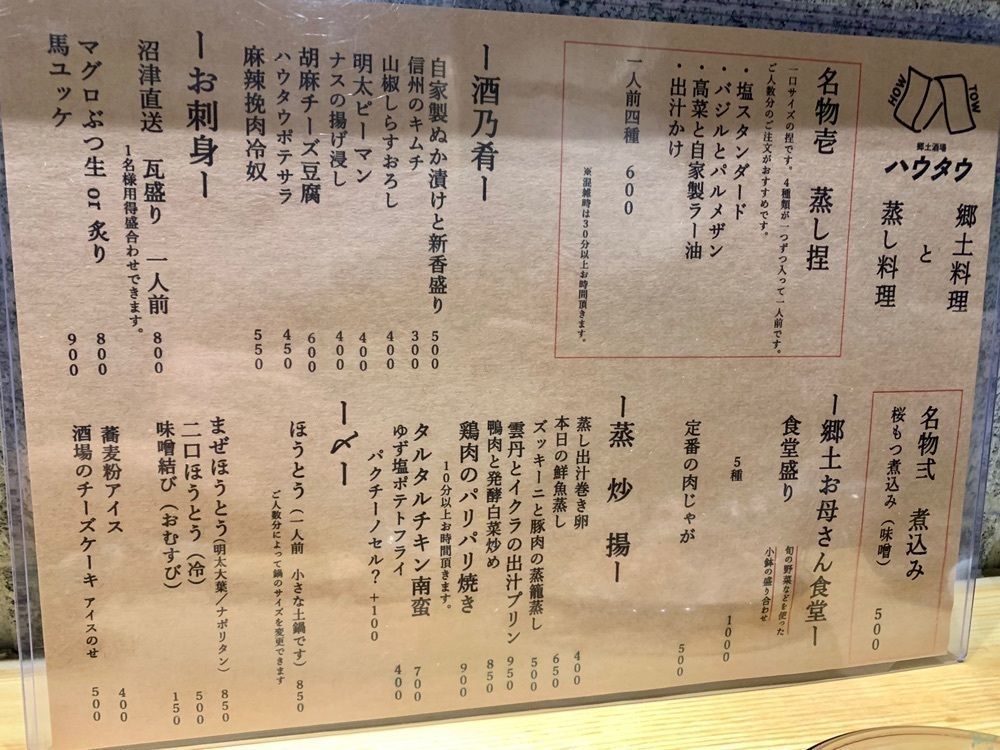 HOW
TOW
郷土酒場
ハウタウ
郷土料理
と
蒸し料理
名物壱 蒸し捏
一口サイズの捏です。4種類が一つずつ入って一人前です。
ご人数分のご注文がおすすめです。
・塩スタンダード
・バジルとパルメザン
・高菜と自家製ラー油
・出汁かけ
一人前四種 600
※混雑時は30分以上お時間頂きます。
ー酒乃肴ー
自家製ぬか漬けと新香盛り 500
信州のキムチ 300
山椒しらすおろし 400
明太ピーマン 400
ナスの揚げ浸し 400
胡麻チーズ豆腐 600
ハウタウポテサラ 450
麻辣挽肉冷奴 550
ーお刺身ー
沼津直送 瓦盛り 一人前 800
1名様用得盛合わせできます。
マグロぶつ生 or 炙り 800
馬ユッケ 900
名物弍 煮込み
桜もつ煮込み(味噌) 500
ー郷土お母さん食堂ー
食堂盛り
旬の野菜などを使った
小鉢の盛り合わせ
5種 1000
定番の肉じゃが 500
ー蒸 炒 揚ー
蒸し出汁巻き卵 400
本日の鮮魚蒸し 650
ズッキーニと豚肉の蒸籠蒸し 500
雲丹とイクラの出汁プリン 950
鴨肉と発酵白菜炒め 850
鶏肉のパリパリ焼き 900
10分以上お時間頂きます。
タルタルチキン南蛮 700
ゆず塩ポテトフライ 400
パクチーノセル? +100
ー〆ー
ほうとう(一人前 小さな土鍋です) 850
ご人数分によって鍋のサイズを変更できます
まぜほうとう(明太大葉/ナポリタン) 850
二口ほうとう(冷) 500
味噌結び(おむすび) 150
蕎麦粉アイス 400
酒場のチーズケーキ アイスのせ 500